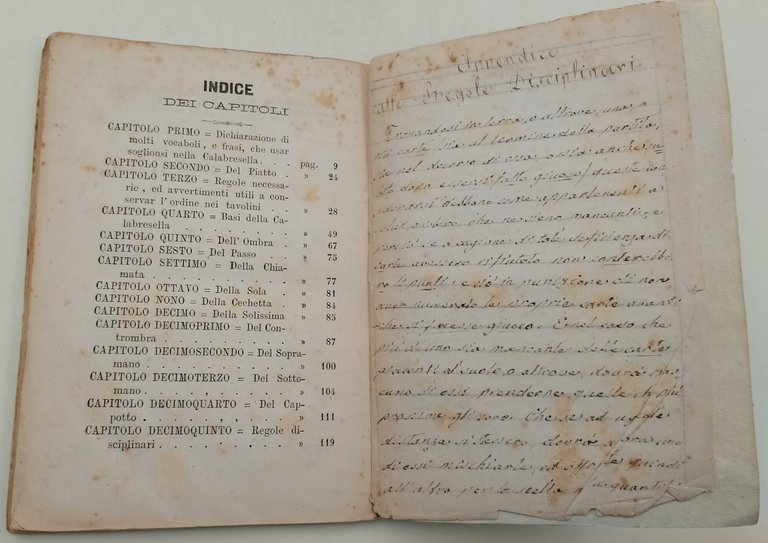 INDICE
DEI CAPITOLI
CAPITOLO PRIMO = Dichiarazione di
molti vocaboli, e frasi, che usar
soglionsi nella Calabresella. . . pag. 9
CAPITOLO SECONDO = Del Piatto . » 24
CAPITOLO TERZO = Regole necessa-
rie, ed avvertimenti utili a con-
servar l'ordine nei tavolini . » 28
CAPITOLO QUARTO = Basi della Ca-
labresella . . . . . . » 49
CAPITOLO QUINTO = Dell'Ombra . » 67
CAPITOLO SESTO = Del Passo . . » 75
CAPITOLO SETTIMO = Della Chia-
mata . . . . . . . » 77
CAPITOLO OTTAVO = Della Sola . » 81
CAPITOLO NONO = Della Cechetta . » 84
CAPITOLO DECIMO = Della Solissima » 85
CAPITOLO DECIMOPRIMO = Del Con-
trombra . . . . . . » 87
CAPITOLO DECIMOSECONDO = Del Sopra-
mano . . . . . . . » 100
CAPITOLO DECIMOTERZO = Del Sotto-
mano . . . . . . . » 104
CAPITOLO DECIMOQUARTO = Del Cap-
potto . . . . . . . » 111
CAPITOLO DECIMOQUINTO = Regole di-
sciplinari . . . . . . » 119
Appendice
alle Regole Disciplinari
Trovandosi in terra, o altrove, una, o
più carte sia al termine della partita,
sia nel decorso di essa, o sia anche
dopo essersi fatto giuoco, queste con
siderarsi debbono come appartenenti a
che ne sieno mancanti; e
perciò se a cagione di tale deficienza di
carte avessero rifiutato non conterebbe
ro i punti: e ciò in punizione di non
aver numerato le proprie carte avanti
che si facesse giuoco. E nel caso che
più di uno sia mancante delle carte
giacenti al suolo, o altrove, dovrà cias
cuno di essi prenderne quelle che più
prossime gli sono. Che se ad uguale
distanza si stessero dovrà
di essi mischiarle, ed offrirle quindi
all'altro per la scelta quanti